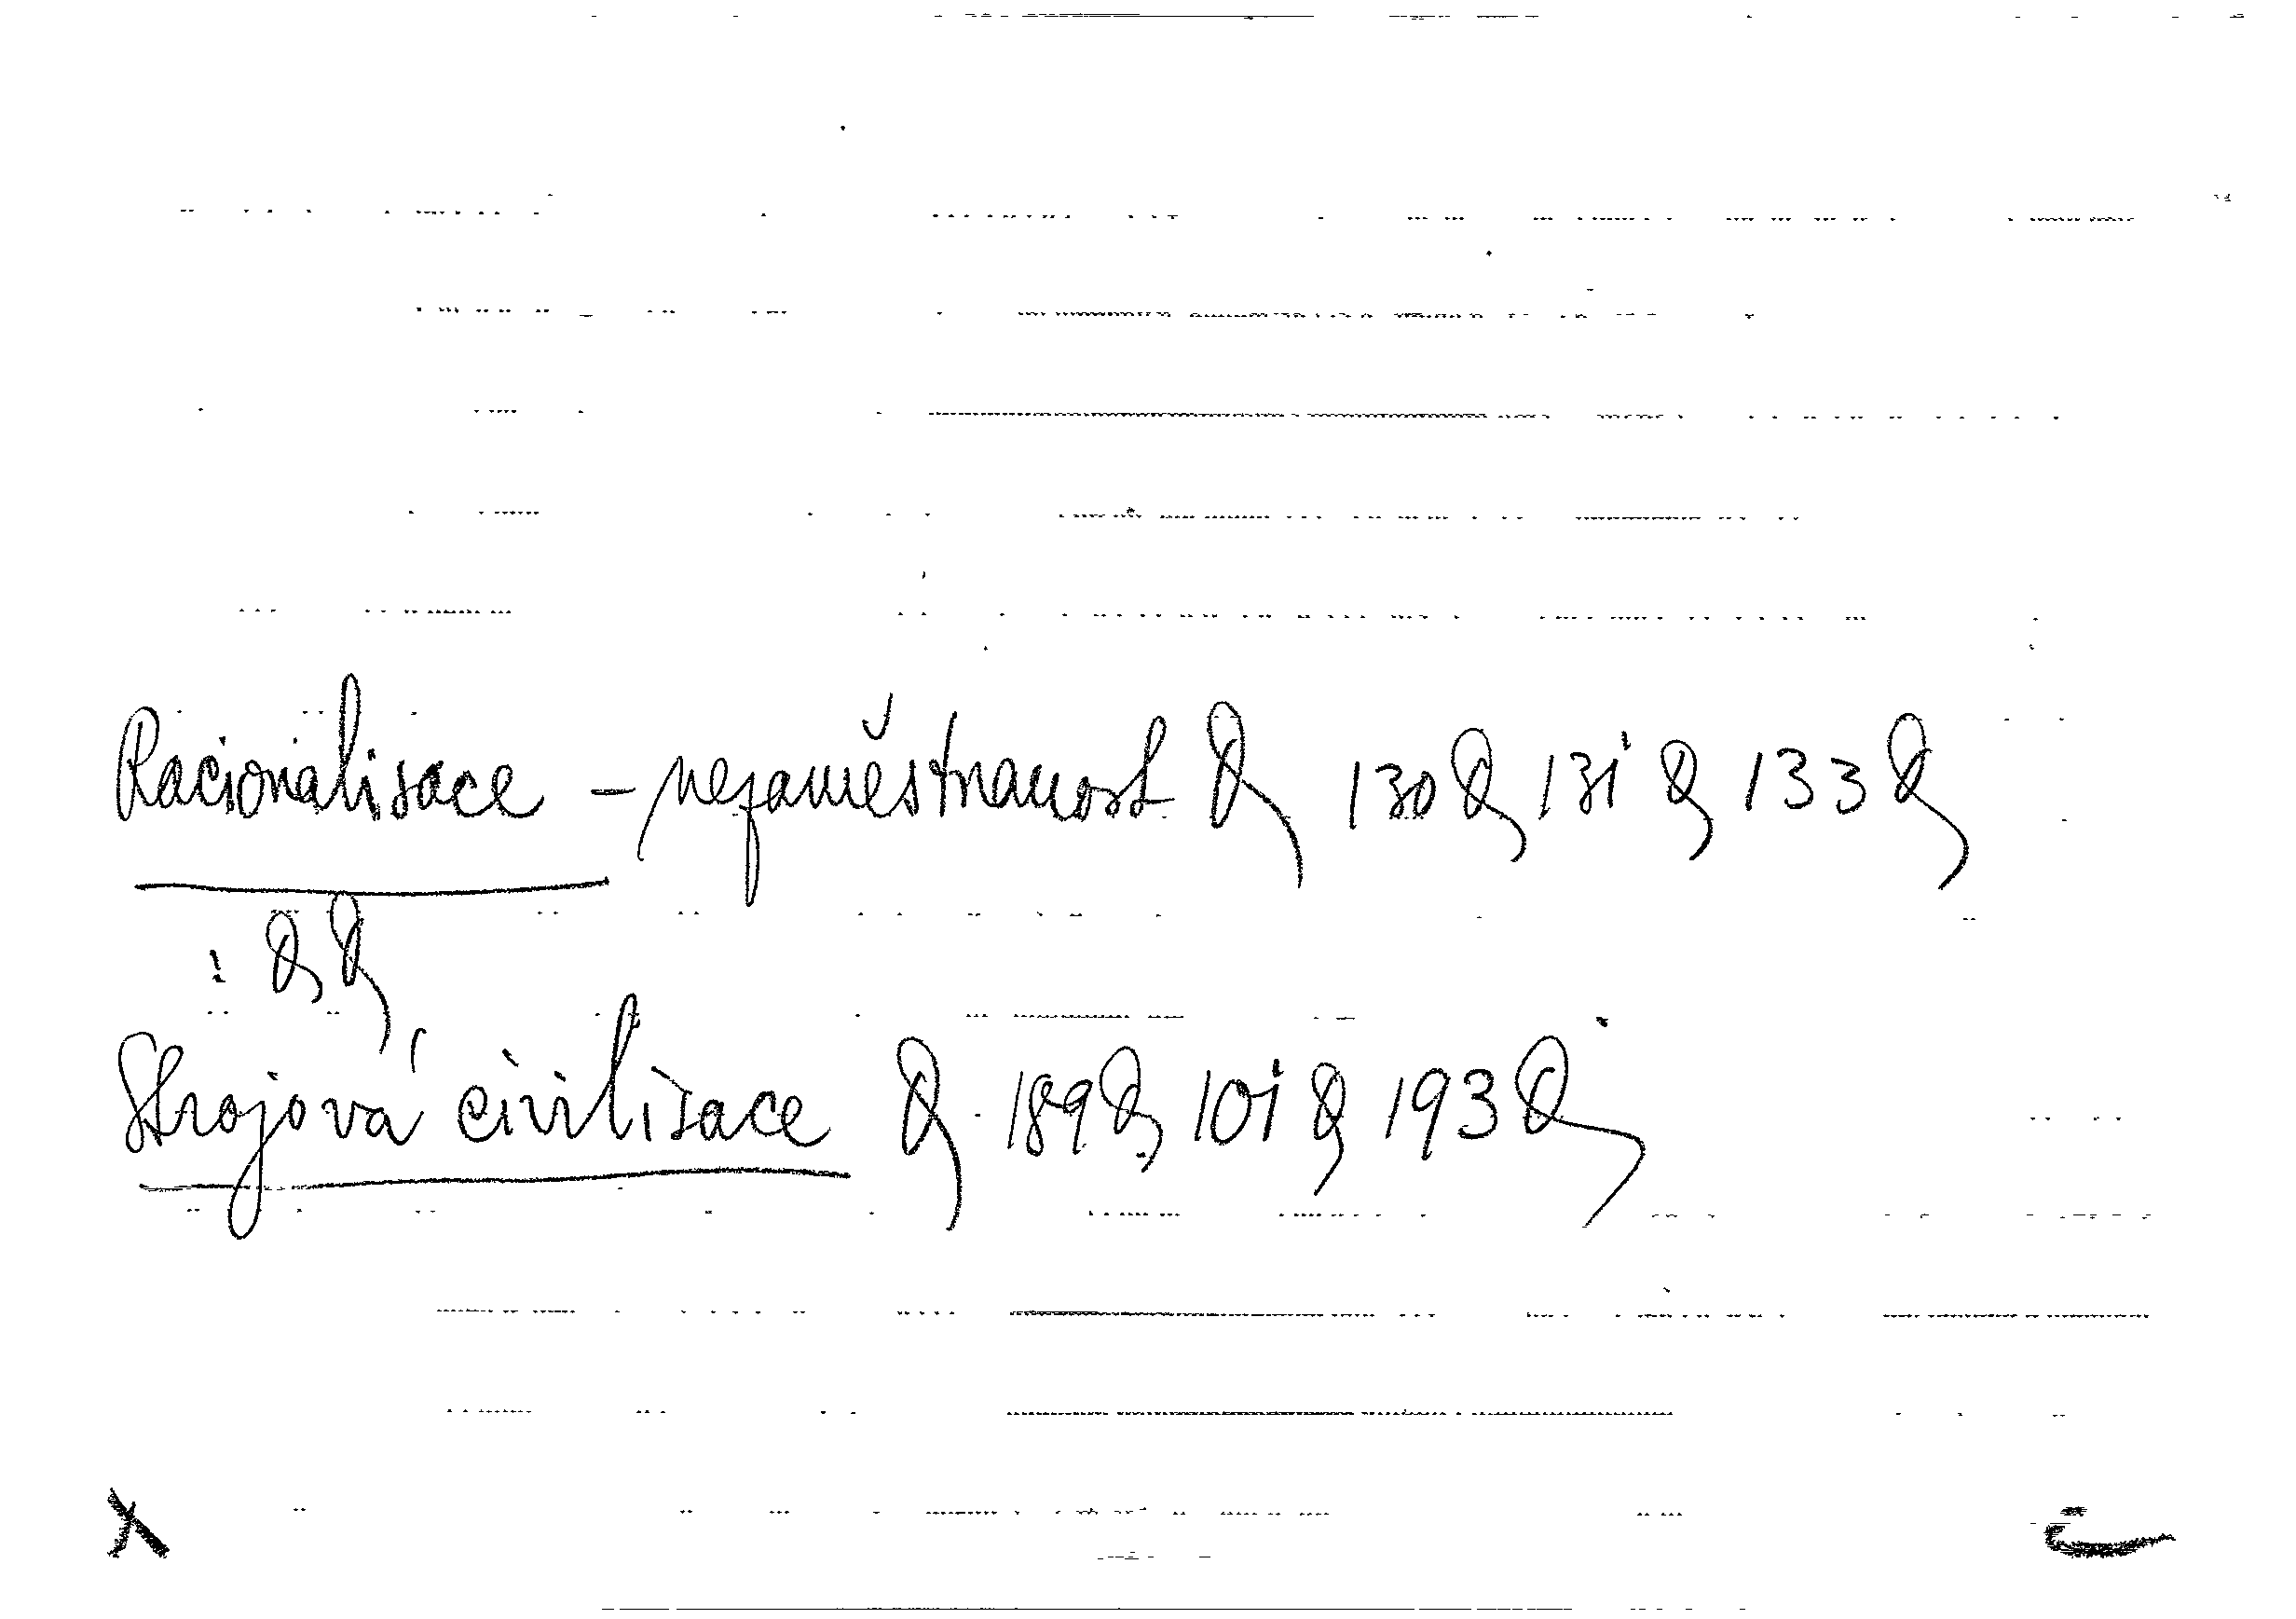 Racionalisace – nezaměstnanost & 130 & 131 & 133 &
: & &
Strojová civilisace & 189 & 101 & 193 &
X